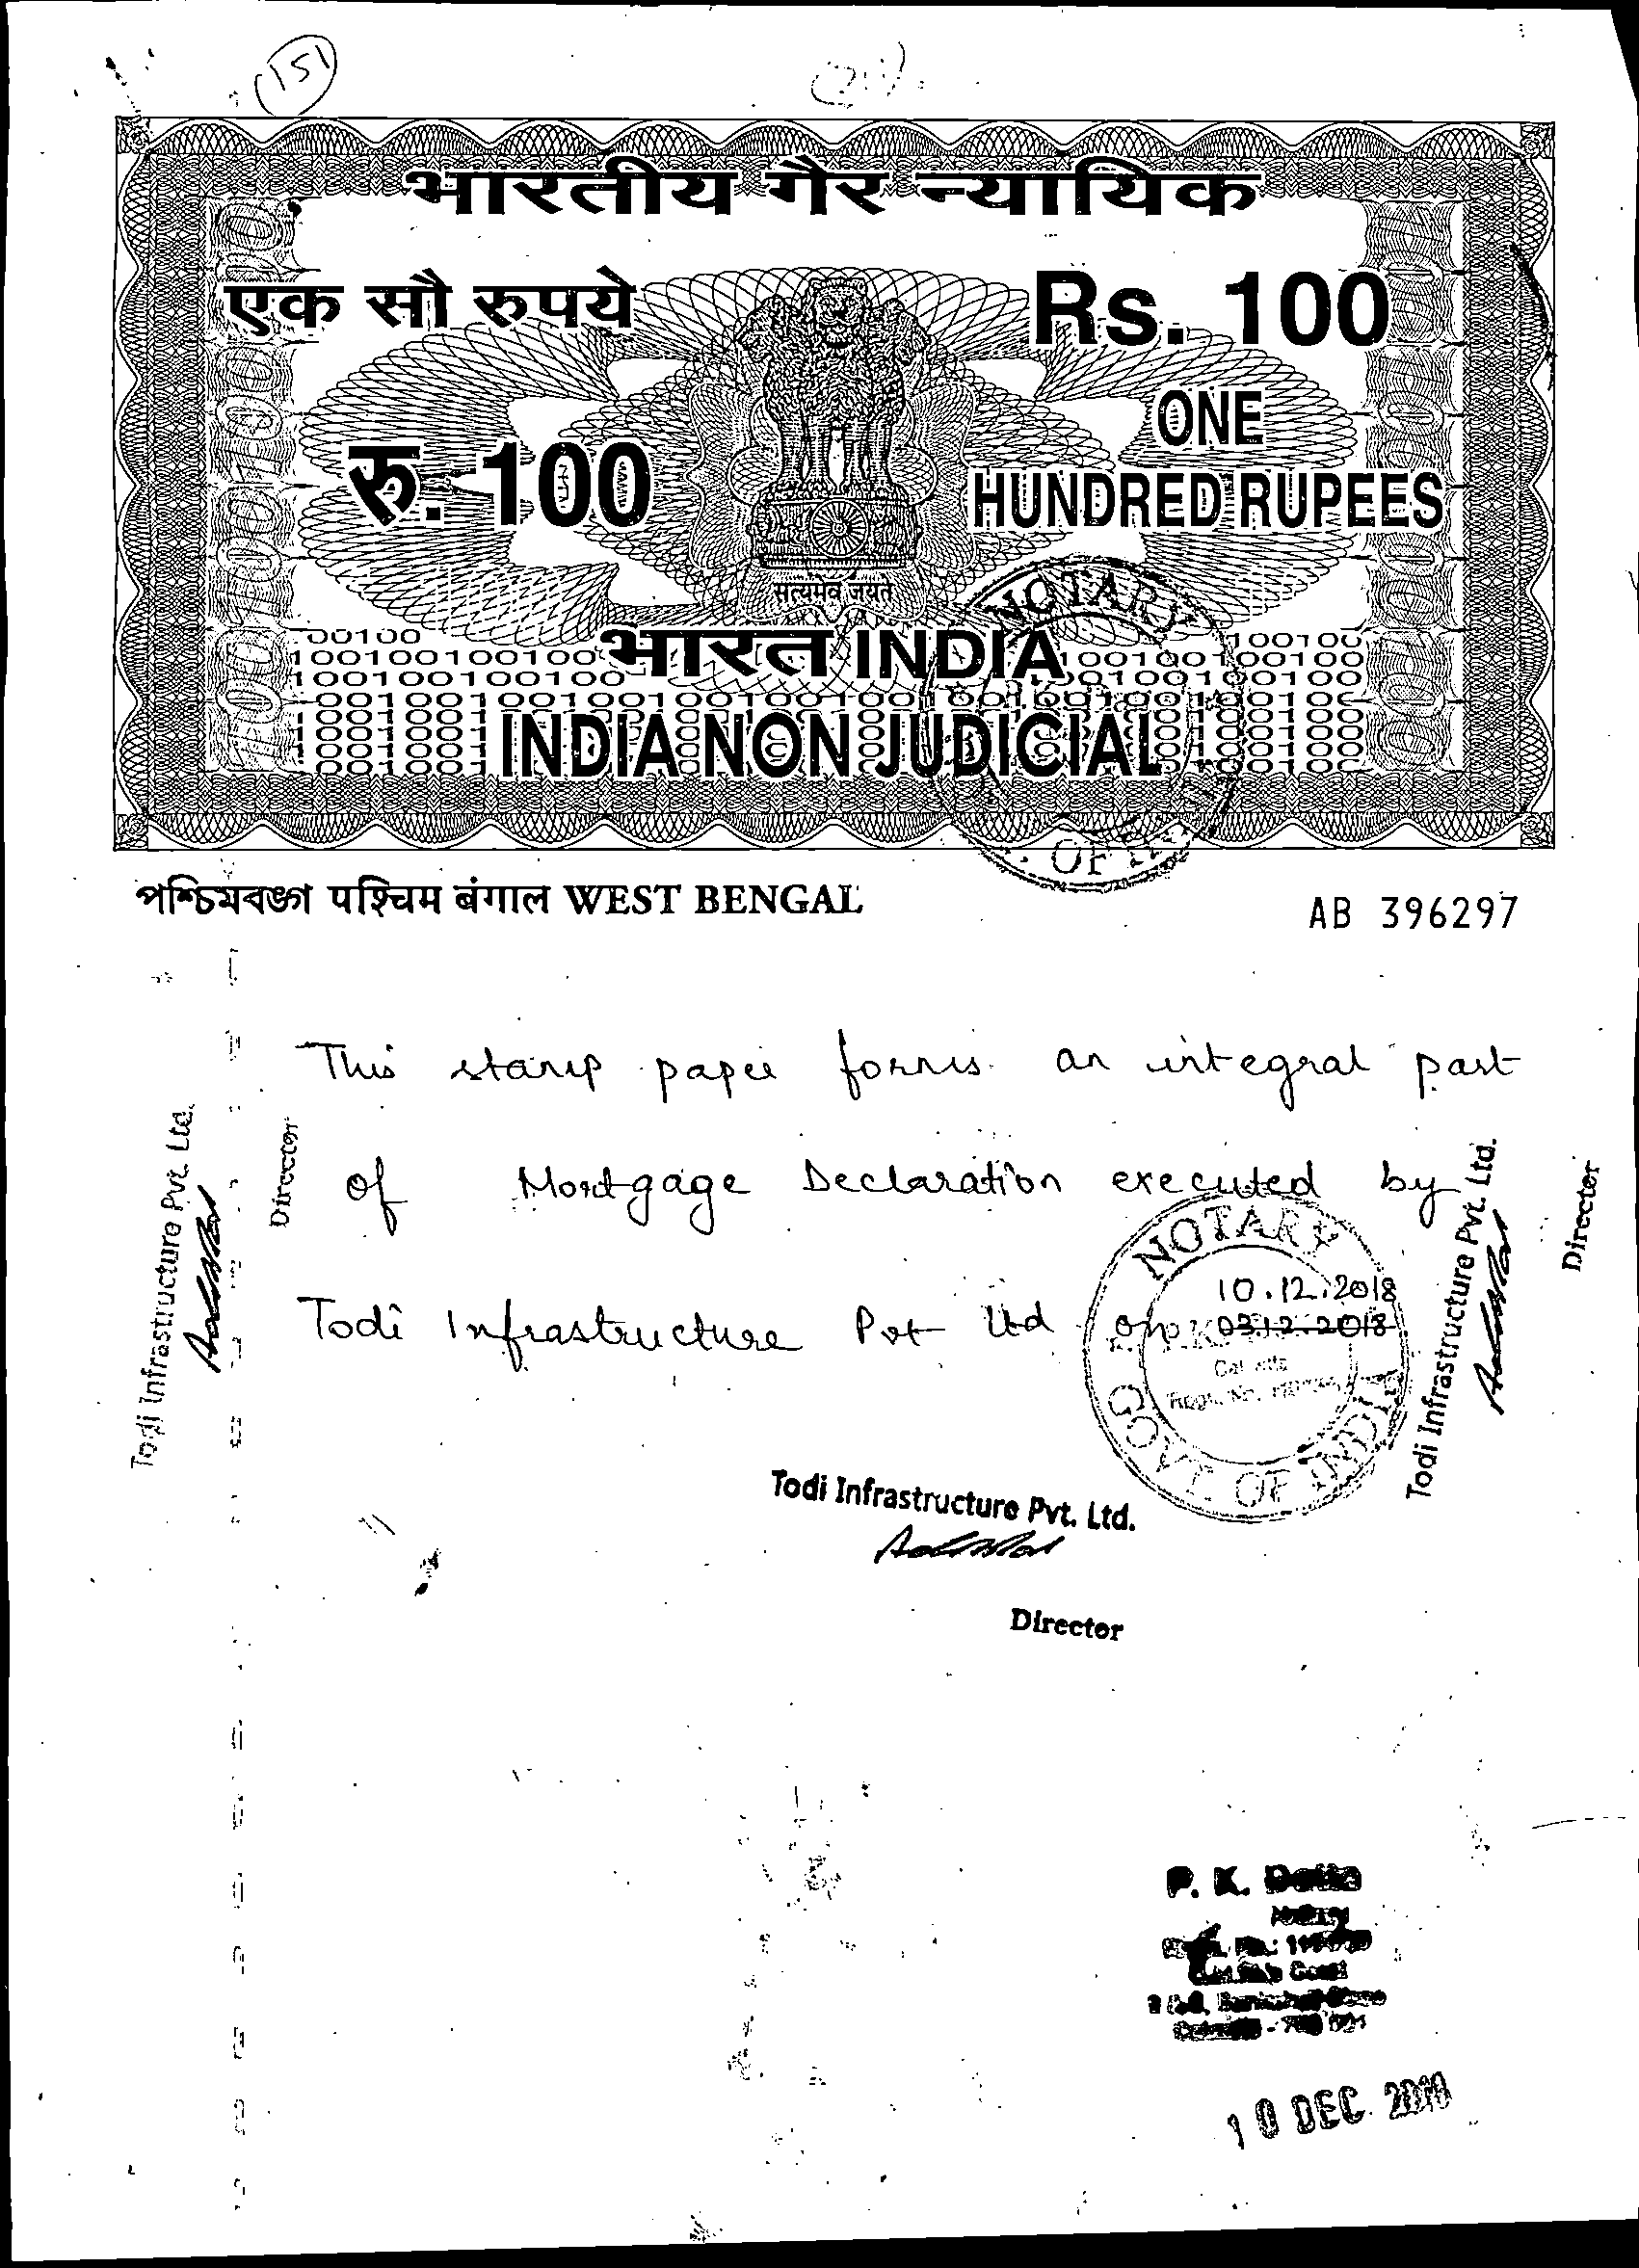 151
भारतीय गैर न्यायिक
एक सौ रुपये
Rs. 100
रु. 100
ONE
HUNDRED RUPEES
सत्यमेव जयते
भारत INDIA
INDIA NON JUDICIAL
NOTARY
পশ্চিমবঙ্গ पश्चिम बंगाल WEST BENGAL
AB 396297
This stamp paper forms an integral part
of Mortgage Declaration executed by
Todi Infrastructure Pvt Ltd on 03.12.2018
10.12.2018
NOTARY
GOVT. OF INDIA
Todi Infrastructure Pvt. Ltd.
Director
Todi Infrastructure Pvt. Ltd.
Director
Todi Infrastructure Pvt. Ltd.
Director
P. K. Datta
Notary
10 DEC 2018